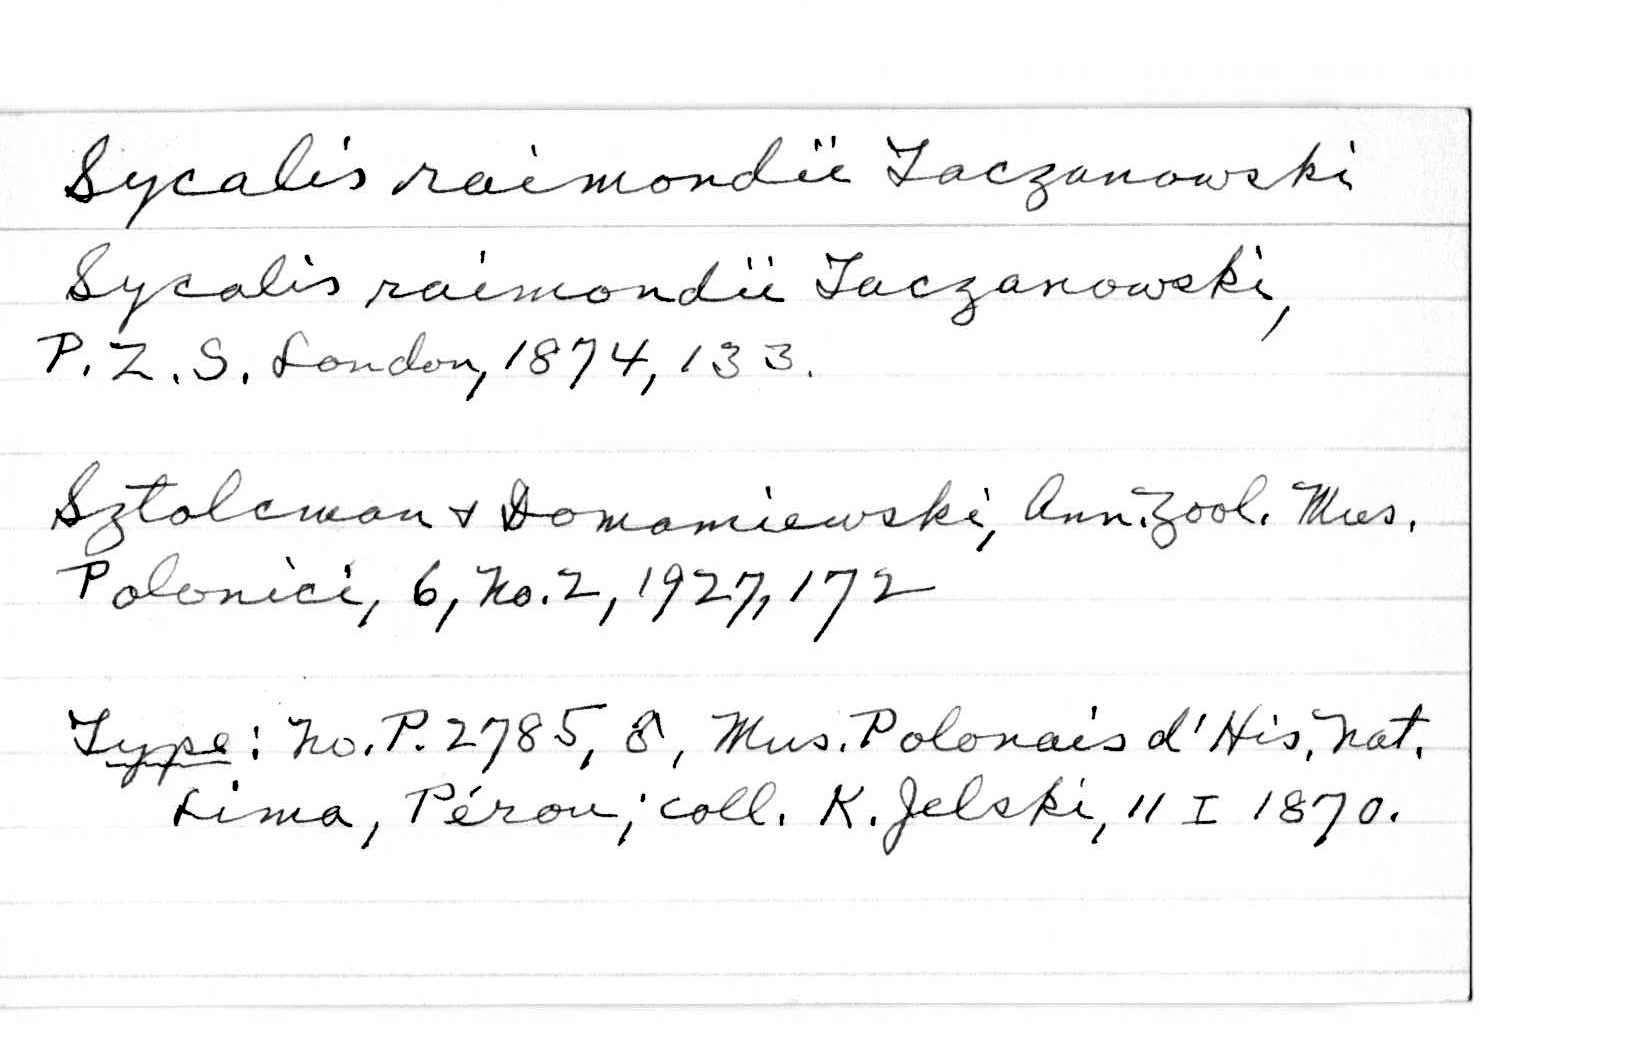 Sycalis raimondii Taczanowski
Sycalis raimondii Taczanowski,
P.Z.S. London, 1874, 133.
Sztolcman & Domaniewski, Ann. Zool. Mus.
Polonici, 6, No. 2, 1927, 172
Type: No. P. 2785, ♂, Mus. Polonais d'His. Nat.
Lima, Pérou; coll. K. Jelski, 11 I 1870.